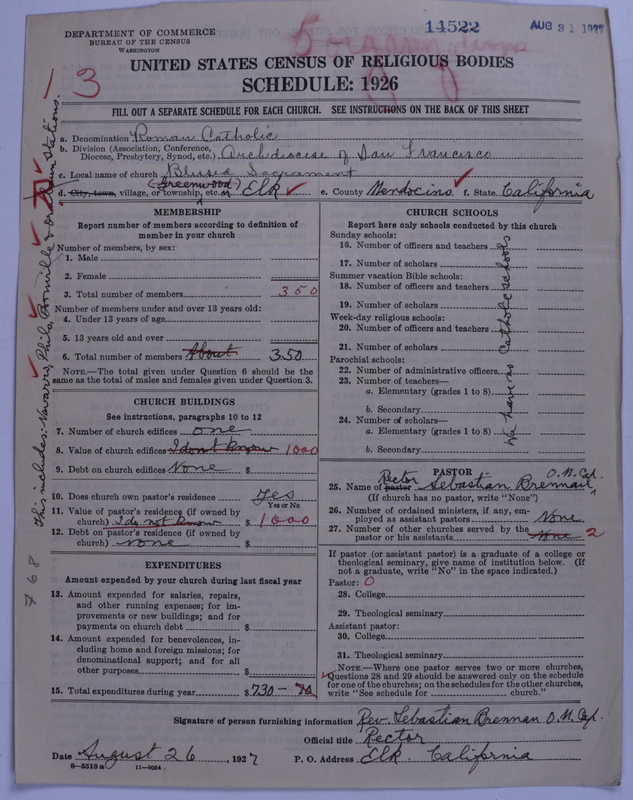 14522
AUG 31 1927
DEPARTMENT OF COMMERCE
BUREAU OF THE CENSUS
WASHINGTON
3
UNITED STATES CENSUS OF RELIGIOUS BODIES
SCHEDULE: 1926
FILL OUT A SEPARATE SCHEDULE FOR EACH CHURCH. SEE INSTRUCTIONS ON THE BACK OF THIS SHEET
a. Denomination Roman Catholic
b. Division (Association, Conference,
Diocese, Presbytery, Synod, etc.) Archdiocese of San Francisco
c. Local name of church Blessed Sacrament
(Greenwood)
d. City, town, village, or township, etc. or Elk e. County Mendocino f. State California
This includes: Navarro, Philo, Boonville & Stations.
768
MEMBERSHIP
Report number of members according to definition of
member in your church
Number of members, by sex:
1. Male
2. Female
3. Total number of members 350
Number of members under and over 13 years old:
4. Under 13 years of age
5. 13 years old and over
6. Total number of members About 350
NOTE.—The total given under Question 6 should be the
same as the total of males and females given under Question 3.
CHURCH BUILDINGS
See instructions, paragraphs 10 to 12
7. Number of church edifices one
8. Value of church edifices I don't know 1000
9. Debt on church edifices None $
10. Does church own pastor's residence Yes
Yes or No
11. Value of pastor's residence (if owned by
church) I do not know $ 1000
12. Debt on pastor's residence (if owned by
church) none $
EXPENDITURES
Amount expended by your church during last fiscal year
13. Amount expended for salaries, repairs,
and other running expenses; for im-
provements or new buildings; and for
payments on church debt $
14. Amount expended for benevolences, in-
cluding home and foreign missions; for
denominational support; and for all
other purposes $
15. Total expenditures during year $730 -
CHURCH SCHOOLS
Report here only schools conducted by this church
Sunday schools:
16. Number of officers and teachers
17. Number of scholars
Summer vacation Bible schools:
18. Number of officers and teachers
19. Number of scholars
Week-day religious schools:
20. Number of officers and teachers
21. Number of scholars
Parochial schools:
22. Number of administrative officers
23. Number of teachers—
a. Elementary (grades 1 to 8)
b. Secondary
24. Number of scholars—
a. Elementary (grades 1 to 8)
b. Secondary
We have no Catholic schools
PASTOR
Rector O.M.Cap.
25. Name of pastor Sebastian Brennan
(If church has no pastor, write "None")
26. Number of ordained ministers, if any, em-
ployed as assistant pastors None
27. Number of other churches served by the
pastor or his assistants None 2
If pastor (or assistant pastor) is a graduate of a college or
theological seminary, give name of institution below. (If
not a graduate, write "No" in the space indicated.)
Pastor: 0
28. College
29. Theological seminary
Assistant pastor:
30. College
31. Theological seminary
NOTE.—Where one pastor serves two or more churches,
Questions 28 and 29 should be answered only on the schedule
for one of the churches; on the schedules for the other churches,
write "See schedule for church."
Signature of person furnishing information Rev. Sebastian Brennan O.M.Cap.
Official title Rector
Date August 26, 1927 P. O. Address Elk, California
8—5518a 11—9064